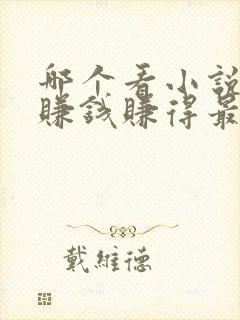 哪个看小说
赚钱赚得最
戴维德